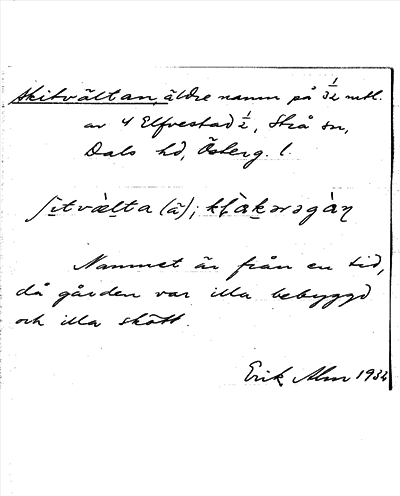 Skitvältan, äldre namn på 3½ mtl.
av 4 Elfvestad ½, Strå sn,
Dals hd, Österg. l.
ʃɪtvæ̀lta (ã);
Namnet är från en tid,
då gården var illa bebyggd
och illa skött.
Erik Alm 1934